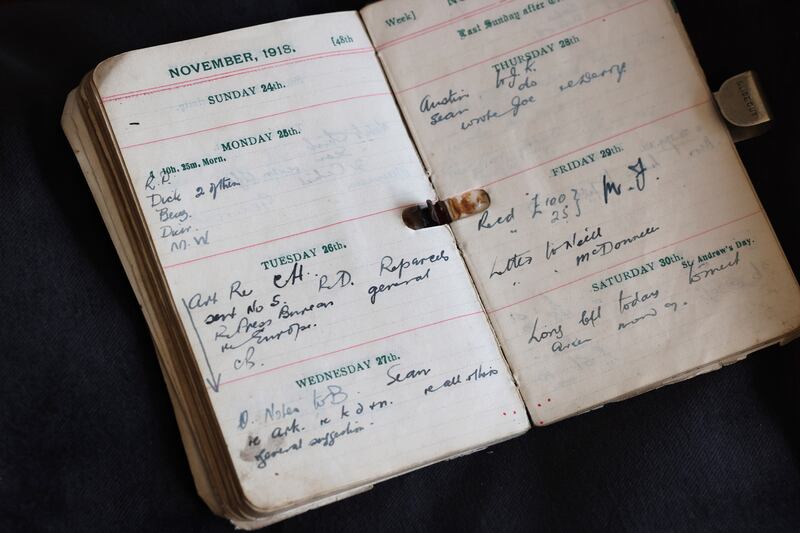 NOVEMBER, 1918. [48th
SUNDAY 24th.
MONDAY 25th.
10h. 25m. Morn.
R.D.
Dick 2 of them
M. W
TUESDAY 26th.
Art Re CH.
sent No 5. R.D. Re parcels
Re Press Bureau general
re Europe.
CB.
WEDNESDAY 27th.
D. Notes to B. Sean
re Ark. re all this
general suggestion.
Week]
Last Sunday after
THURSDAY 28th
Austin
Sean do
wrote Joe
FRIDAY 29th.
Recd £100 } M. J.
" 25 }
Letter to Neill
" " McDonnell
SATURDAY 30th. St. Andrew's Day.
Long left today to meet